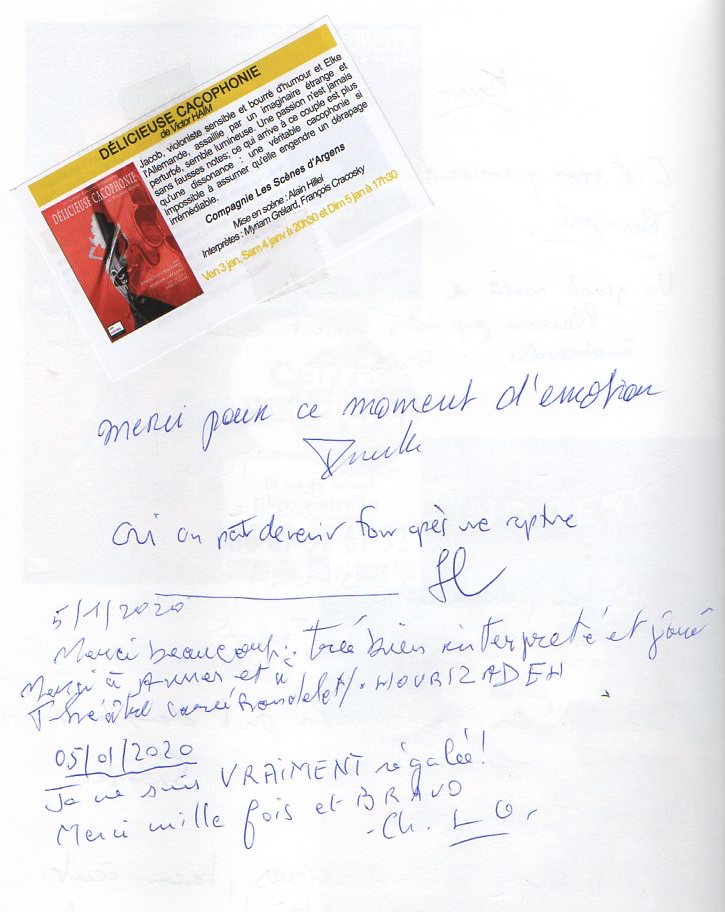 DÉLICIEUSE CACOPHONIE
de Victor HAÏM
Jacob, violoniste sensible et bourré d'humour et Elke
l'Allemande, assaillie par un imaginaire étrange et
perturbé, semble lumineuse. Une passion n'est jamais
sans fausses notes; ce qui arrive à ce couple est plus
qu'une dissonance : une véritable cacophonie si
impossible à assumer qu'elle engendre un dérapage
irrémédiable.
Compagnie Les Scènes d'Argens
Mise en scène : Alain Hillel
Interprètes : Myriam Grélard, François Cracosky
Ven 3 jan, Sam 4 janv à 20h30 et Dim 5 jan à 17h30
DÉLICIEUSE CACOPHONIE
merci pour ce moment d'emotion
Oui on peut devenir fou après une rupture
5/1/2020
Merci beaucoup : très bien interpreté et joué
Merci à et à
Théâtre carré Rondelet / . HOURIZADEH
05/01/2020
Je me suis VRAIMENT régalée !
Merci mille fois et BRAVO
- Ch. L O.